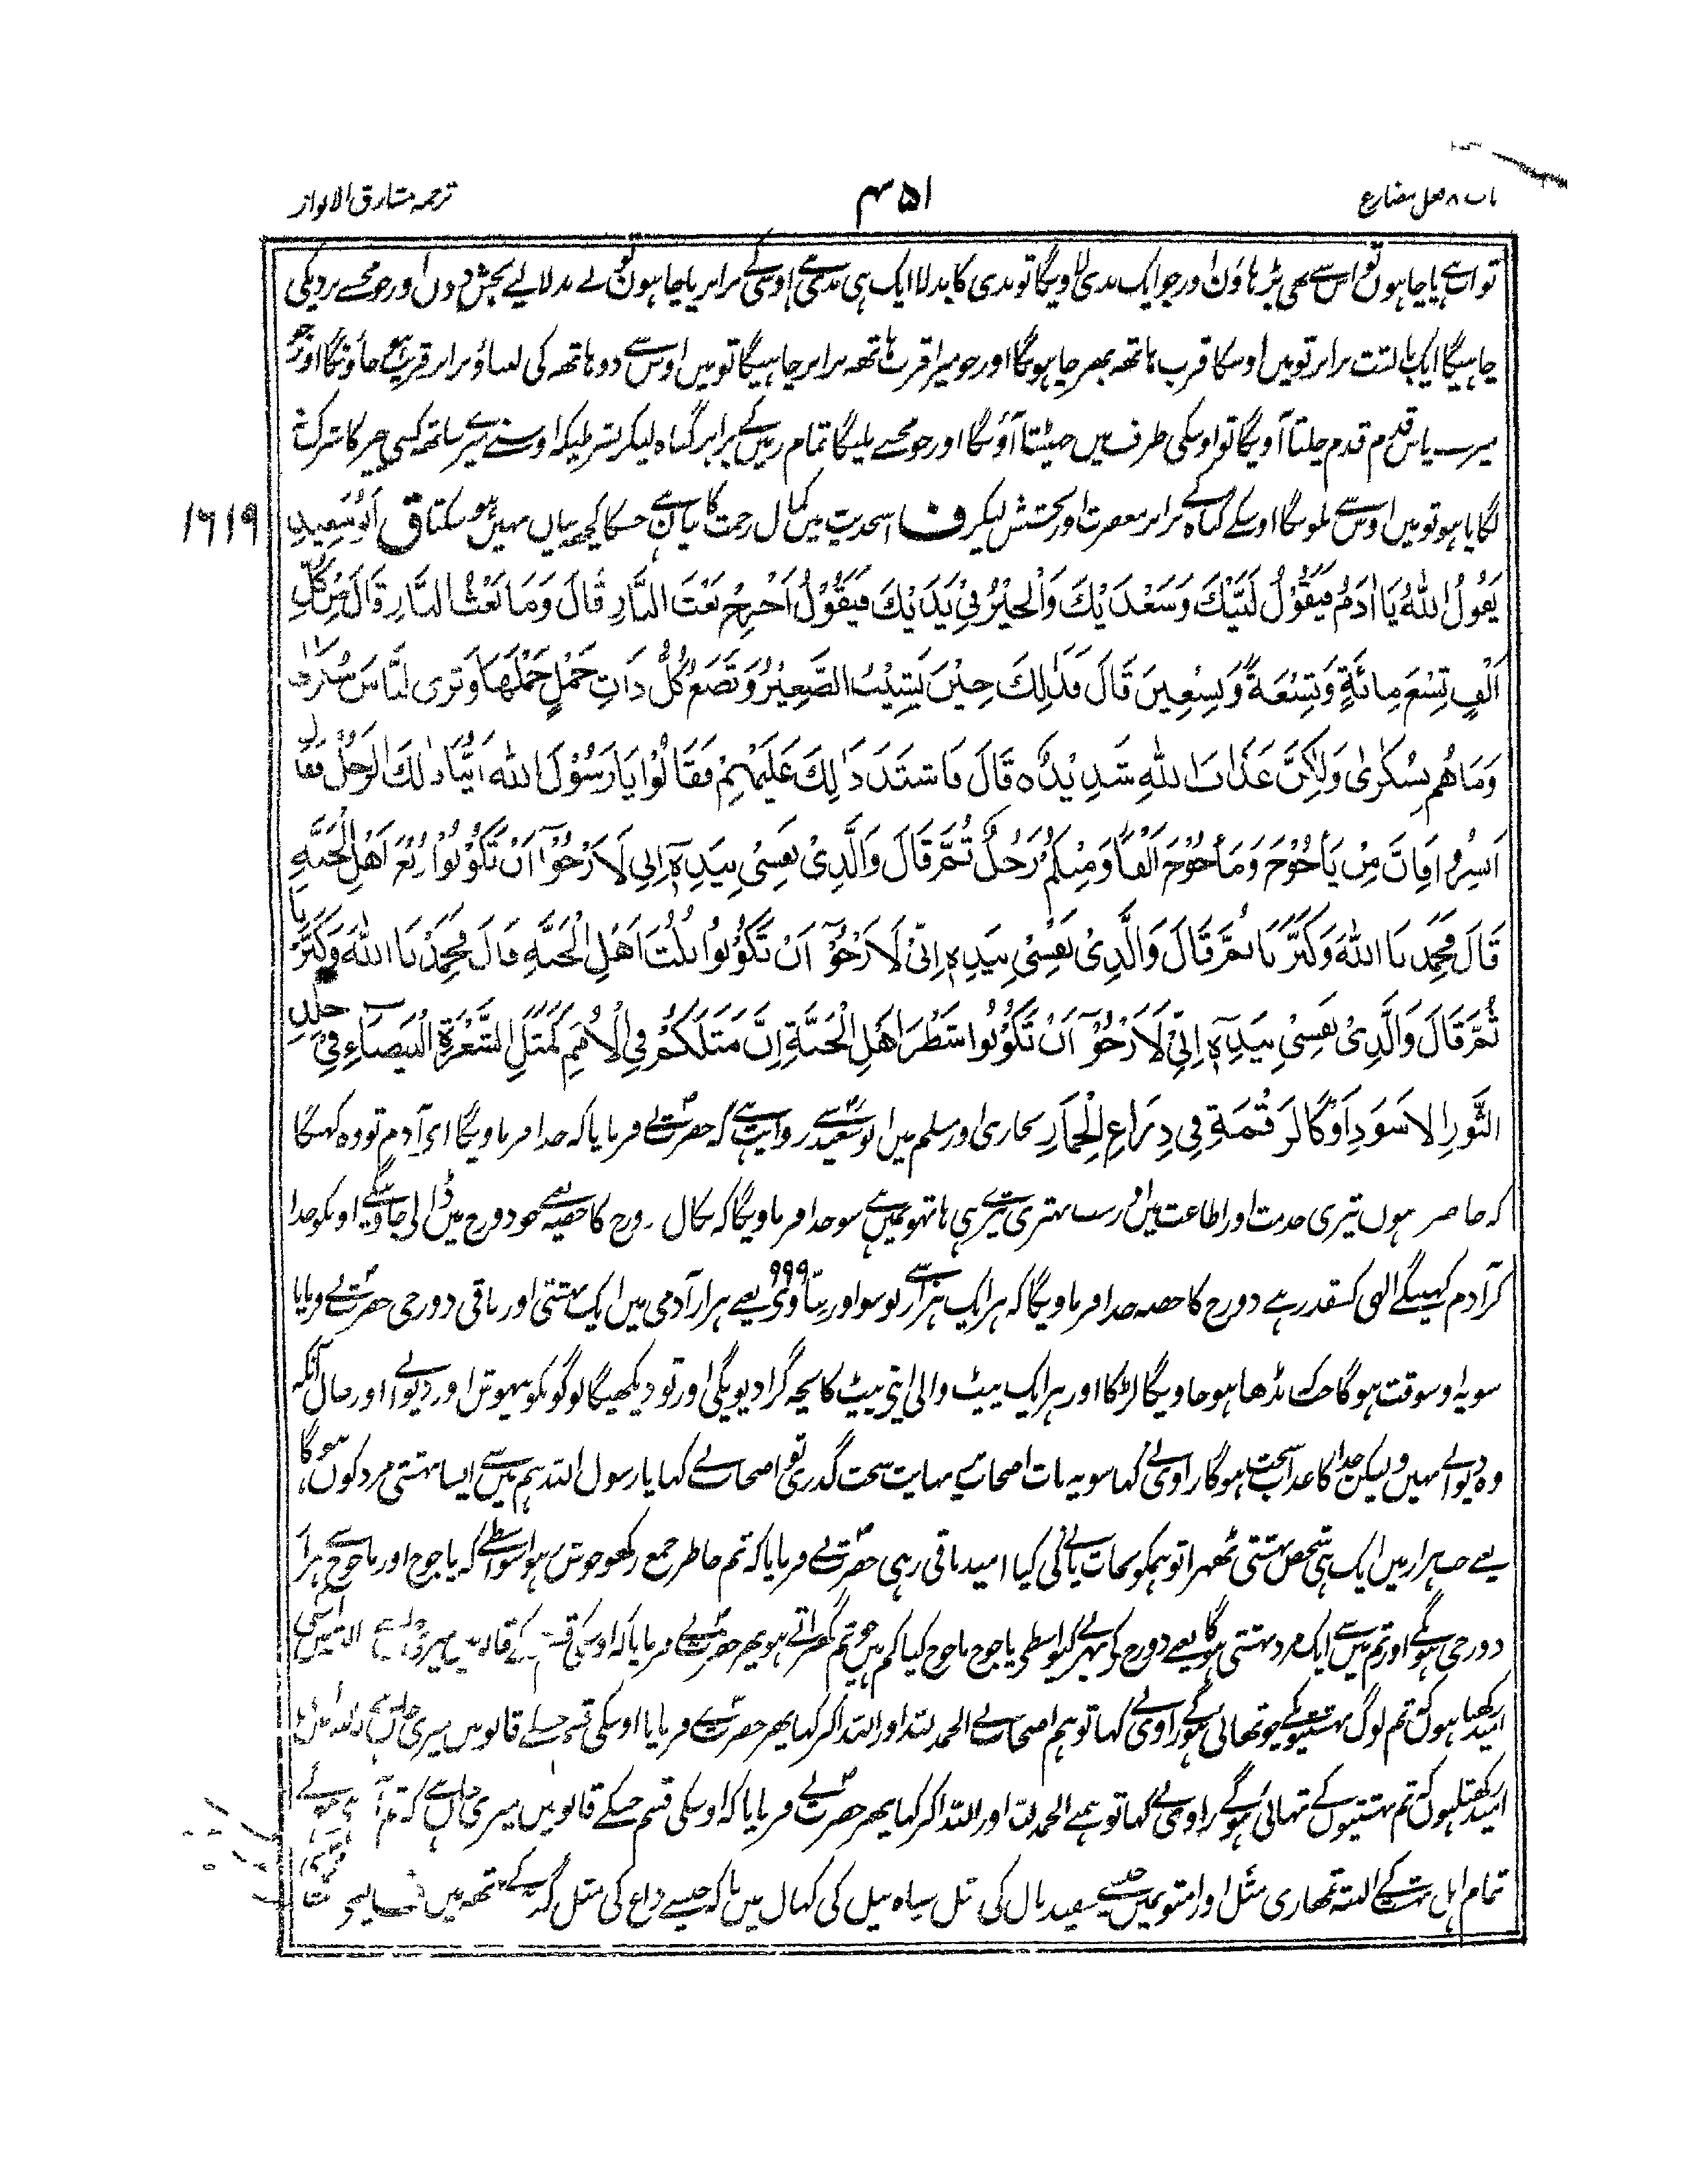 باب ۸ فصل مضارع
۴۵۱
ترجمہ مشارق الانوار
تو اتنے یا چاہوں تو اس سے بھی بڑہاؤن اور جو ایک بدی لاویگا تو بدی کا بدلا ایک ہی بدی ہے اوسکی برابر یا چاہوں تو بے بدلا لیے بخش دوں اور جو مجھسے نزدیکی
چاہیگا ایک بالشت برابر تو میں اوسکا قرب ہاتھ بھر چاہونگا اور جو میرا قرب ہاتھ برابر چاہیگا تو میں اوس سے دو ہاتھ کی لنباؤ برابر قریب ہو جاؤنگا اور جو
میرے پاس قدم قدم چلتا آویگا تو اوسکی طرف میں جھپٹتا آؤنگا اور جو مجھسے ملیگا تمام زمین کے برابر گناہ لیکر بشرطیکہ اوسنے میرے ساتھ کسی چیز کا شرک نہ
لگایا ہو تو میں اوس سے ملونگا اوسکے گناہ کے برابر مغفرت اور بخشش لیکر ف اس حدیث میں کمال رحمت کا بیان ہے جسکا کچھ بیان نہیں ہو سکتا ق أَبُو سَعِيدٍ
۱۶۱۹
يَقُولُ اللهُ يَا اٰدَمُ فَيَقُوْلُ لَبَّيْكَ وَسَعْدَيْكَ وَالْخَيْرُ فِيْ يَدَيْكَ فَيَقُوْلُ اَخْرِجْ بَعْثَ النَّارِ قَالَ وَمَا بَعْثُ النَّارِ قَالَ مِنْ كُلِّ
اَلْفٍ تِسْعَ مِائَةٍ وَتِسْعَةً وَتِسْعِينَ قَالَ فَذٰلِكَ حِيْنَ يَشِيْبُ الصَّغِيْرُ وَتَضَعُ كُلُّ ذَاتِ حَمْلٍ حَمْلَهَا وَتَرَى النَّاسَ سُكَارٰى
وَمَا هُم بِسُكَارٰى وَلٰكِنَّ عَذَابَ اللهِ شَدِيْدٌ ہ قَالَ فَاشْتَدَّ ذٰلِكَ عَلَيْهِمْ فَقَالُوْا يَا رَسُوْلَ اللهِ اَيُّنَا ذٰلِكَ الرَّجُلُ فَقَالَ
اَبْشِرُوا فَاِنَّ مِنْ يَأْجُوْجَ وَمَأْجُوْجَ اَلْفًا وَمِنْكُمْ رَجُلٌ ثُمَّ قَالَ وَالَّذِيْ نَفْسِيْ بِيَدِهٖ اِنِّي لَاَرْجُوْٓ اَنْ تَكُوْنُوا رُبْعَ اَهْلِ الْجَنَّةِ
قَالَ فَحَمِدْنَا اللهَ وَكَبَّرْنَا ثُمَّ قَالَ وَالَّذِيْ نَفْسِيْ بِيَدِهٖ اِنِّيْ لَاَرْجُوْٓ اَنْ تَكُوْنُوا ثُلُثَ اَهْلِ الْجَنَّةِ قَالَ فَحَمِدْنَا اللهَ وَكَبَّرْنَا
ثُمَّ قَالَ وَالَّذِيْ نَفْسِيْ بِيَدِهٖ اِنِّيْ لَاَرْجُوْٓ اَنْ تَكُوْنُوا شَطْرَ اَهْلِ الْجَنَّةِ اِنَّ مَثَلَكُمْ فِي الْاُمَمِ كَمَثَلِ الشَّعْرَةِ الْبَيْضَاءِ فِي جِلْدِ
الثَّوْرِ الْاَسْوَدِ اَوْ كَالرَّقْمَةِ فِي ذِرَاعِ الْحِمَارِ بخاری اور مسلم میں ابو سعیدؓ سے روایت ہے کہ حضرتؐ نے فرمایا کہ خدا فرماویگا ای آدم تو وہ کہیگا
کہ حاضر ہوں تیری خدمت اور اطاعت میں اور سب بہتری تیرے ہی ہاتھونمیں ہے سو خدا فرماویگا کہ نکال دوزخ کا حصہ یعنے جو دوزخ میں ڈالی جاوینگے اونکو جدا
کر آدم کہینگے الہی کسقدر ہے دوزخ کا حصہ خدا فرماویگا کہ ہر ایک ہزار سے نو سو اور ننانوی ۹۹۹ یعنے ہزار آدمی میں ایک بہشتی اور باقی دوزخی حضرتؐ نے فرمایا
سو یہ اوسوقت ہوگا جب بڈھا ہو جاویگا لڑکا اور ہر ایک پیٹ والی اپنی پیٹ کا بچہ گرا دیویگی اور تو دیکھیگا لوگونکو بیہوش اور دیوانے اور حال آنکہ
وہ دیوانے نہیں ولیکن خدا کا عذاب سخت ہوگا راوی نے کہا سو یہ بات اصحاب پر نہایت سخت گذری تو اصحاب نے کہا یا رسول اللہ ہم میں سے ایسا بہشتی مرد کون ہوگا
یعنے جب ہزار میں ایک ہی شخص بہشتی ٹھہرا تو ہمکو نجات پانے کی کیا امید باقی رہی حضرتؐ نے فرمایا کہ تم خاطر جمع رکھو خوش ہو اسواسطے کہ یاجوج اور ماجوج سے ہزار
دوزخی ہونگے اور تم میں سے ایک مرد بہشتی ہوگا یعنے دوزخ کی بھرنے کیواسطے یاجوج ماجوج کیا کم ہیں جو تم گھبراتے ہو پھر حضرتؐ نے فرمایا کہ اوسکی قسم جسکے قابو میں میری جان ہے البتہ میں اسکی
امید رکھتا ہوں کہ تم لوگ بہشتیونکے چوتھائی ہو گے راوی نے کہا تو ہم اصحاب نے الحمد للہ اور اللہ اکبر کہا پھر حضرتؐ نے فرمایا اوسکی قسم جسکے قابو میں میری جان ہے البتہ میں
امید رکھتا ہوں کہ تم بہشتیوں کے تہائی ہو گے راوی نے کہا تو ہمنے الحمد للہ اور اللہ اکبر کہا پھر حضرتؐ نے فرمایا کہ اوسکی قسم جسکے قابو میں میری جان ہے کہ تم
تمام اہل بہشت کے البتہ تمھاری مثل اور امتونمیں جیسے سفید بال کی مثل سیاہ بیل کی کہال میں یا کہ جیسے داغ کی مثل گدہے کے ہاتھ میں ف